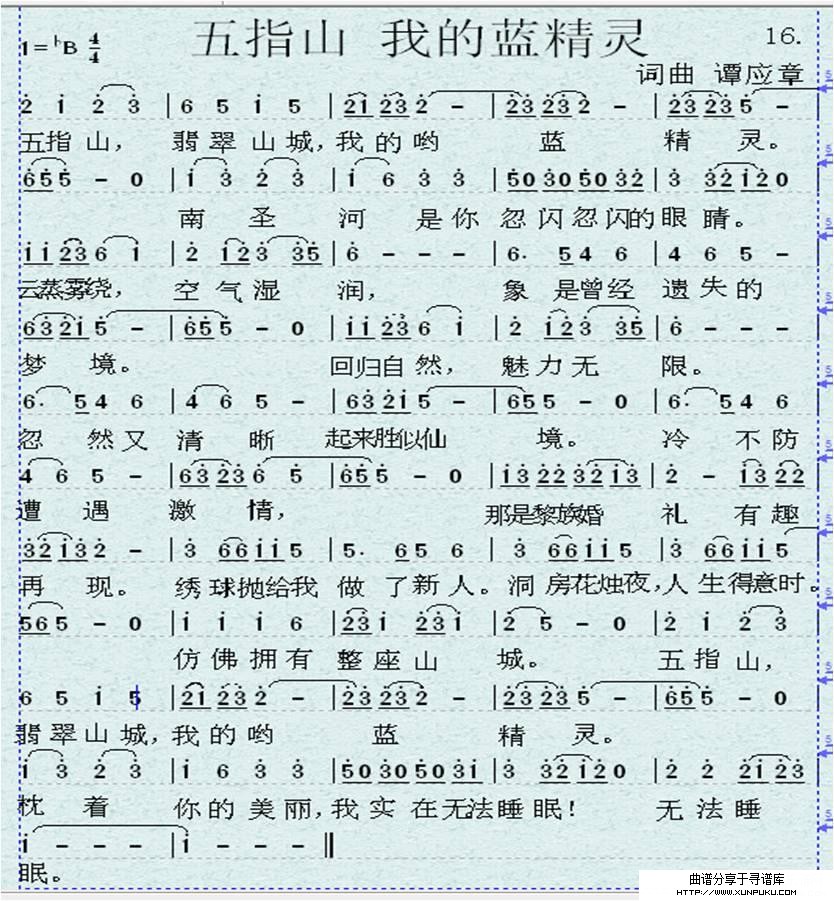 五指山 我的蓝精灵
16.
1=ᵇB 4/4
词曲 谭应章
2 1 2 3 | 6 5 1 5 | 21 23 2 – | 23 23 2 – | 23 23 5 –
五指山， 翡翠山城，我的哟 蓝 精 灵。
655 – 0 | 1 3 2 3 | 1 6 3 3 | 50 30 50 32 | 3 32 120
南 圣 河 是你 忽闪忽闪的眼睛。
11 236 1 | 2 123 35 | 6 – – – | 6. 5 4 6 | 4 6 5 –
云蒸雾绕， 空气湿 润， 象 是曾经 遗失的
63 21 5 – | 655 – 0 | 11 23 6 1 | 2 123 35 | 6 – – –
梦 境。 回归自然， 魅力无 限。
6. 5 4 6 | 4 6 5 – | 63 21 5 – | 655 – 0 | 6. 5 4 6
忽 然又 清 晰 起来胜似仙 境。 冷 不防
4 6 5 – | 63 23 6 5 | 655 – 0 | 13 22 32 13 | 2 – 13 22
遭 遇 激 情， 那是黎族婚 礼 有趣
32 132 – | 3 66 11 5 | 5. 6 5 6 | 3 66 11 5 | 3 66 11 5
再 现。 绣球抛给我 做 了新人。洞 房花烛夜，人生得意时。
565 – 0 | 1 1 1 6 | 23 1 23 1 | 2 5 – 0 | 2 1 2 3
仿佛拥有 整座山 城。 五指山，
6 5 1 5 | 21 23 2 – | 23 23 2 – | 23 23 5 – | 655 – 0
翡翠山城，我的哟 蓝 精 灵。
1 3 2 3 | 1 6 3 3 | 50 30 50 31 | 3 32 120 | 2 2 21 23
枕 着 你的美丽，我实 在无法睡眠！ 无法睡
1 – – – | 1 – – – ‖
眠。
曲谱分享于寻谱库
HTTP://WWW.XUNPUKU.COM